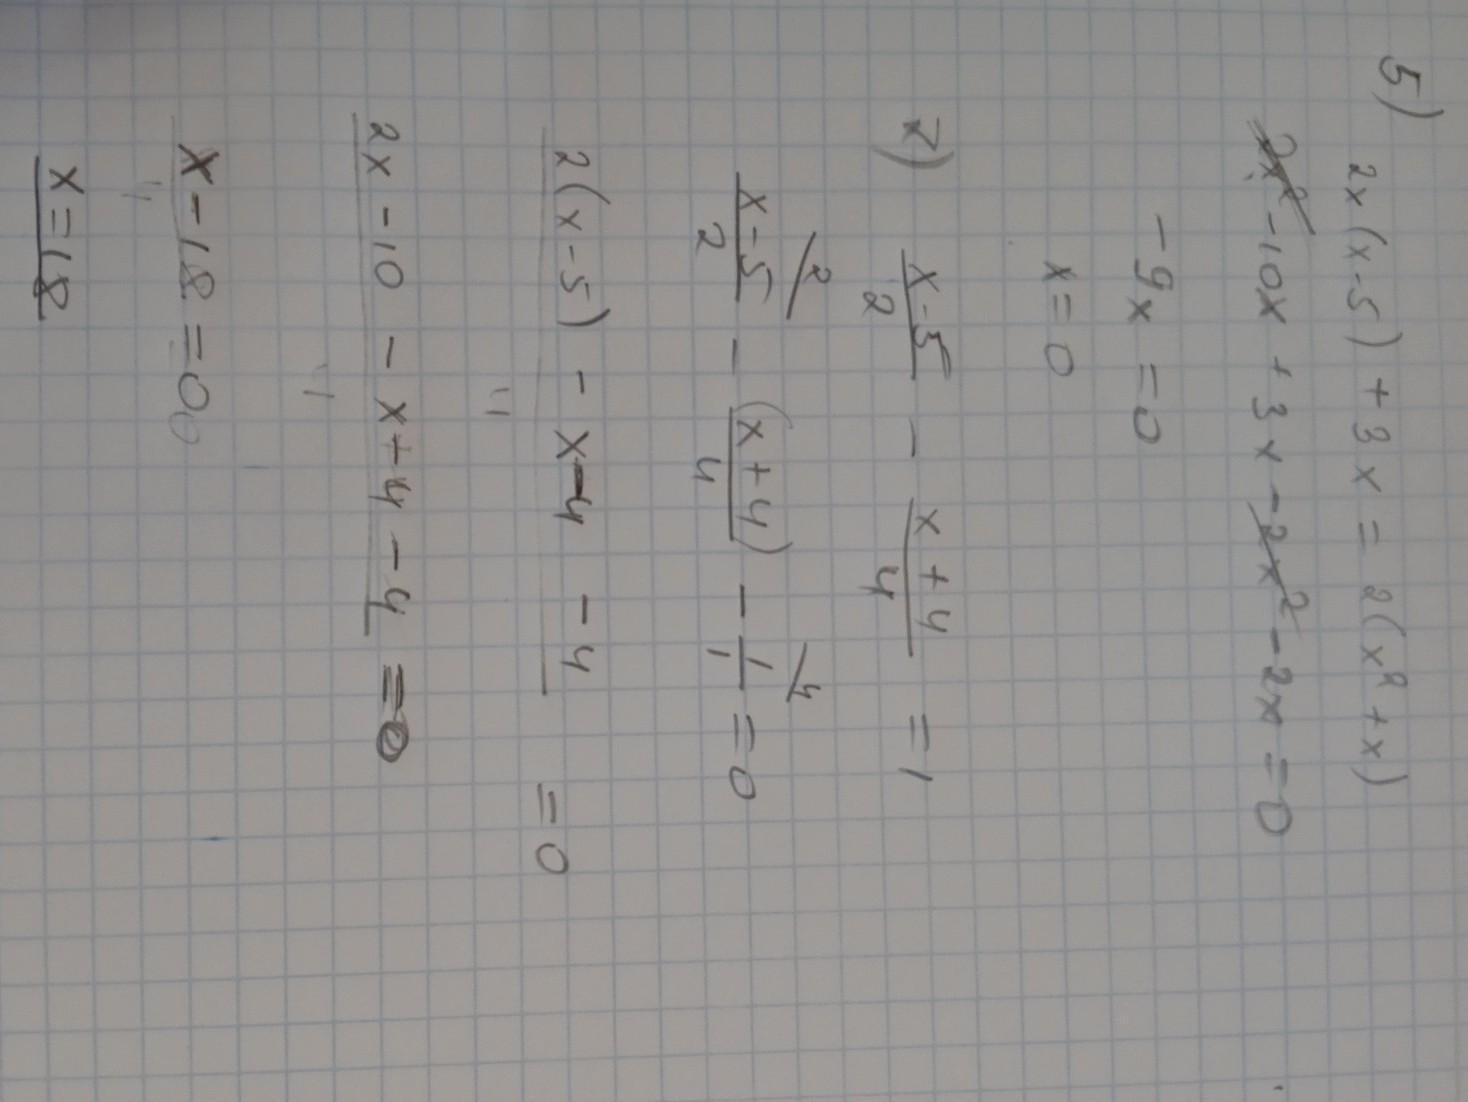 5) 2x(x-5)+3x=2(x²+x)
2x²-10x+3x-2x²-2x=0
-9x=0
x=0
7) x-5/2 - x+4/4 = 1
x-5/2 /2 - (x+4)/4 - 1/1 /4 = 0
2(x-5) - x-4 - 4 = 0
2x-10 - x+4 - 4 = 0
x-18=0
x=18